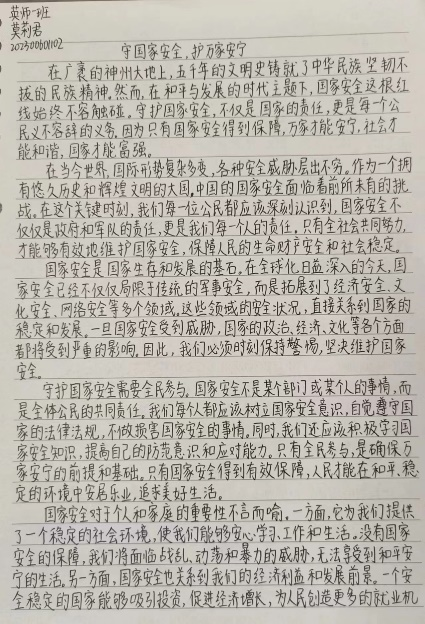 英师一班
莫莉君
20230060102
守国家安全,护万家安宁
在广袤的神州大地上,五千年的文明史铸就了中华民族坚韧不
拔的民族精神。然而,在和平与发展的时代主题下,国家安全这根红
线始终不容触碰。守护国家安全,不仅是国家的责任,更是每个公
民义不容辞的义务,因为只有国家安全得到保障,万家才能安宁,社会才
能和谐,国家才能富强。
在当今世界,国际形势复杂多变,各种安全威胁层出不穷。作为一个拥
有悠久历史和辉煌文明的大国,中国的国家安全面临着前所未有的挑
战。在这个关键时刻,我们每一位公民都应该深刻认识到,国家安全不
仅仅是政府和军队的责任,更是我们每一个人的责任,只有全社会共同努力,
才能够有效地维护国家安全,保障人民的生命财产安全和社会稳定。
国家安全是国家生存和发展的基石,在全球化日益深入的今天,国
家安全已经不仅仅局限于传统的军事安全,而是拓展到了经济安全、文
化安全、网络安全等多个领域。这些领域的安全状况,直接关系到国家的
稳定和发展。一旦国家安全受到威胁,国家的政治、经济、文化等各个方面
都将受到严重的影响。因此,我们必须时刻保持警惕,坚决维护国家
安全。
守护国家安全需要全民参与。国家安全不是某个部门或某个人的事情,而
是全体公民的共同责任。我们每个人都应该树立国家安全意识,自觉遵守国
家的法律法规,不做损害国家安全的事情。同时,我们还应该积极学习国
家安全知识,提高自己的防范意识和应对能力。只有全民参与,是确保万
家安宁的前提和基础。只有国家安全得到有效保障,人民才能在和平、稳
定的环境中安居乐业,追求美好生活。
国家安全对于个人和家庭的重要性不言而喻。一方面,它为我们提供
了一个稳定的社会环境,使我们能够安心学习、工作和生活。没有国家
安全的保障,我们将面临战乱、动荡和暴力的威胁,无法享受到和平安
宁的生活。另一方面,国家安全也关系到我们的经济利益和发展前景。一个安
全稳定的国家能够吸引投资,促进经济增长,为人民创造更多的就业机